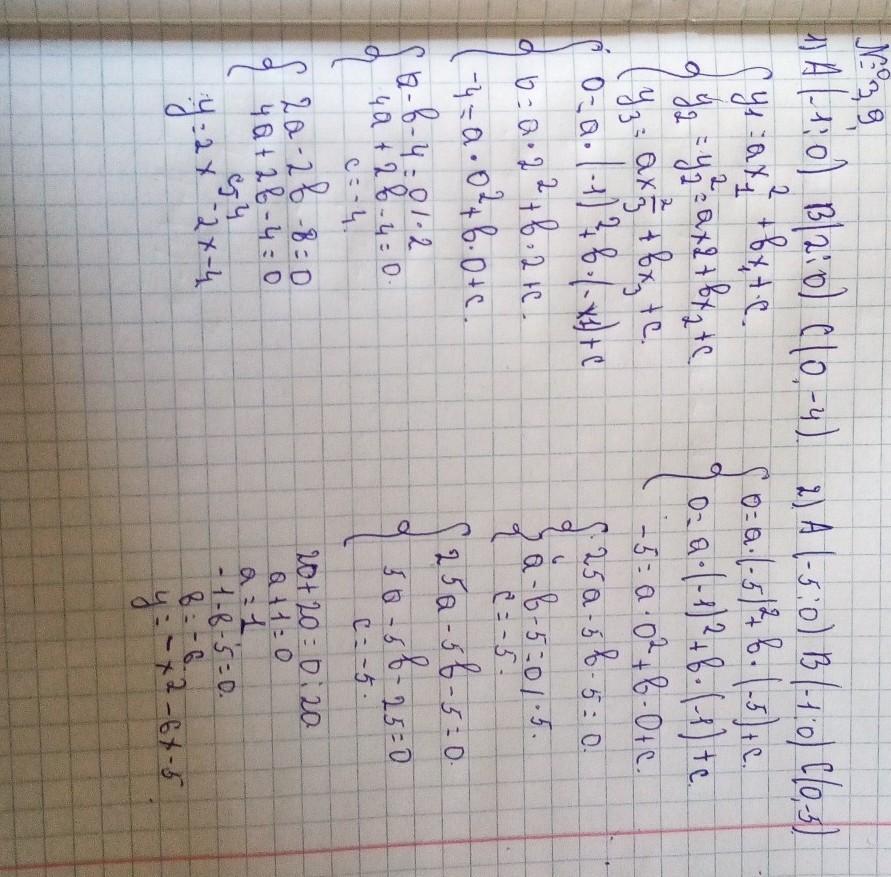 № 3,9.
1) A(-1;0) B(2;0) C(0,-4).
{ y₁ = ax₁² + bx₁ + c.
y₂ = y₂² = ax2 + bx₂ + c.
y₃ = ax₃² + bx₃ + c.
{ 0 = a·(-1)² + b·(-1) + c
0 = a·2² + b·2 + c.
-4 = a·0² + b·0 + c.
{ a - b - 4 = 0 |·2
4a + 2b - 4 = 0.
c = -4.
{ 2a - 2b - 8 = 0
4a + 2b - 4 = 0
y = 2x² - 2x - 4
2) A(-5;0) B(-1;0) C(0,-5).
{ 0 = a·(-5)² + b·(-5) + c.
0 = a·(-1)² + b·(-1) + c.
-5 = a·0² + b·0 + c.
{ 25a - 5b - 5 = 0.
a - b - 5 = 0 |·5.
c = -5.
{ 25a - 5b - 5 = 0.
5a - 5b - 25 = 0
c = -5.
20a + 20 = 0 : 20
a + 1 = 0
a = 1
-1 - b - 5 = 0.
b = -6.
y = -x² - 6x - 5